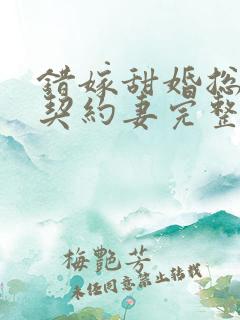 錯嫁甜婚总
契約妻完整
梅艷芳
未经同意禁止转载